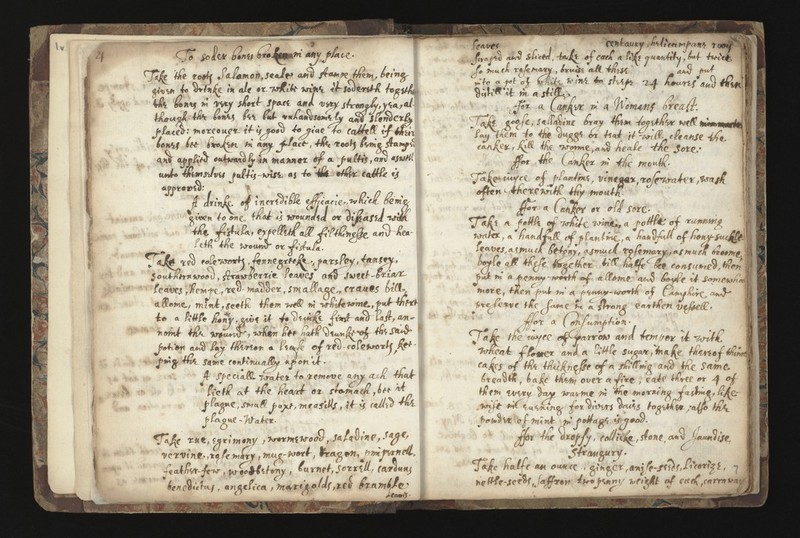 4
To soder bones broken in any place.
Take the roots Salomon, seale and stampe them, being
given to drinke in ale or white wine, it sodereth togethe
the bones in very short space and very strongly, yea, al
though the bones bee but unhandsomely and slenderly
placed: moreouer it is good to giue to cattell if their
bones bee broken in any place, the roots being stamped
and applied outwardly in manner of a pultis, and aswell
unto themselves pultis-wise as to the other cattle is
approved:
A drinke of incredible efficacie, which being
given to one, that is wounded or diseased with
the fistula, expelleth all filthinesse and hea-
leth the wound or fistula.
Take red coleworts, fennegreeke, parsley, tansey,
southernwood, strawberrie leaves and sweet-briar
leaves, hempe, red madder, smallage, cranes bill,
allome, mint, seeth them well in white wine, put therto
to a little hony, give it to drinke first and last, an-
noint the wound, when hee hath drunke of the said
potion and lay theron a leafe of red coleworts, kee-
ping the same continually upon it.
A speciall water to remove any ach that
lieth at the heart or stomach, bee it
plague, small poxe, measills, it is called the
plague-water.
Take rue, egrimony, wormewood, saladine, sage,
vervine, rosemary, mug-wort, dragon, pimpernell,
feather-few, woodbtony, burnet, sorrell, carduus
benedictus, angelica, marigolds, red bramble
leaves
leaves centaury, helicampane root
scraped and sliced, take of each a like quantity, but twice
so much rosemary, bruise all these and put
into a pot of white wine to steep 24 houres and then
distill it in a still.
ffor a Canker in a Womans breast.
Take goose, salladine bray them together well
lay them to the dugge or teat it will cleanse the
canker, kill the worme, and heale the sore.
ffor the Canker in the mouth.
Take iuyce of plantine, vinegar, rosewater, wash
often therewith thy mouth.
ffor a Canker or old sore.
Take a pottle of white wine, a pottle of running
water, a handfull of plantine, a handfull of hony-suckle
leaves, asmuch betony, asmuch rosemary, asmuch broome,
boyle all these together till halfe bee consumed, then
put in a penny worth of allome, and boyle it somewhat
more, then put in a penny-worth of Camphire, and
preserve the same in a strong earthen vessell.
ffor a Consumption.
Take the iuyce of yarrow and temper it with
wheat flower and a little sugar, make thereof thinne
cakes of the thicknesse of a shilling and the same
breadth, bake them over a fire, eate three or 4 of
them every day warme in the morning fasting, like-
wise at evening, for divers daies together, allso the
poudre of mint, in pottage is good.
ffor the dropsy, collicke, stone, and Jaundise,
Strangury.
Take halfe an ounce, ginger, anise-seeds, licorize,
nettle-seeds, saffron two penny weight of each, carraway